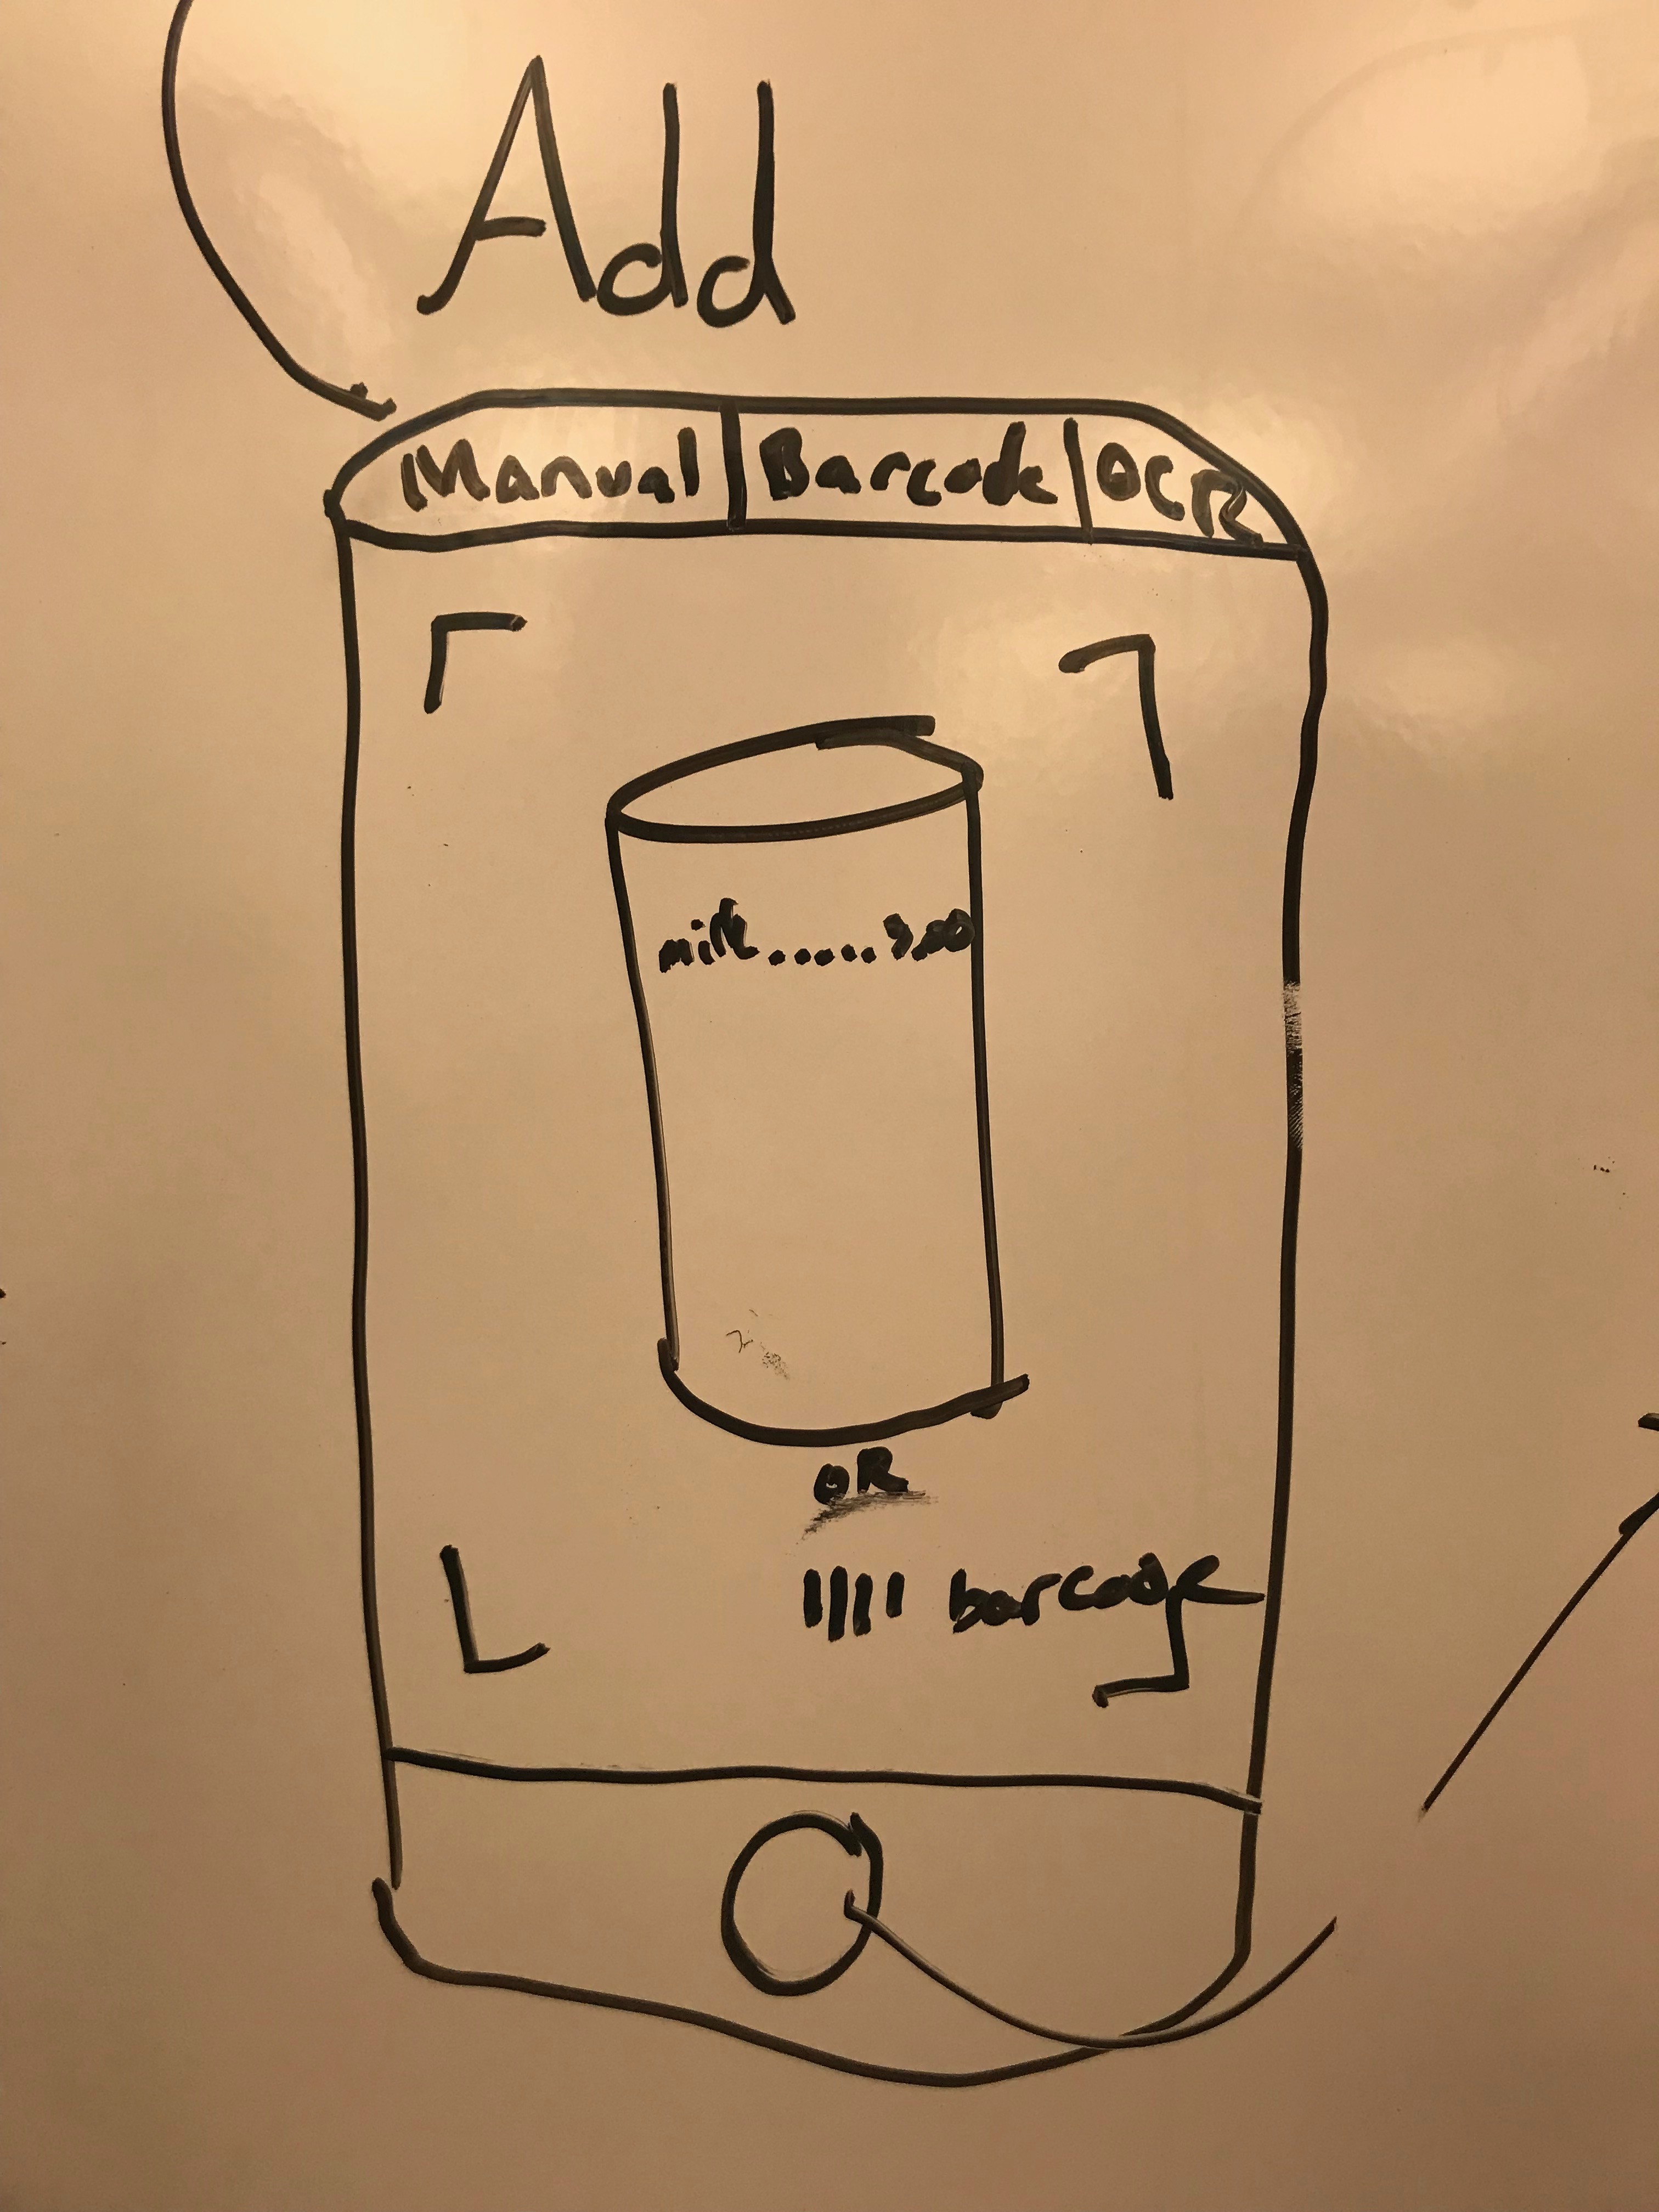 Add
Manual Barcode OCR
milk......3.00
OR
barcode